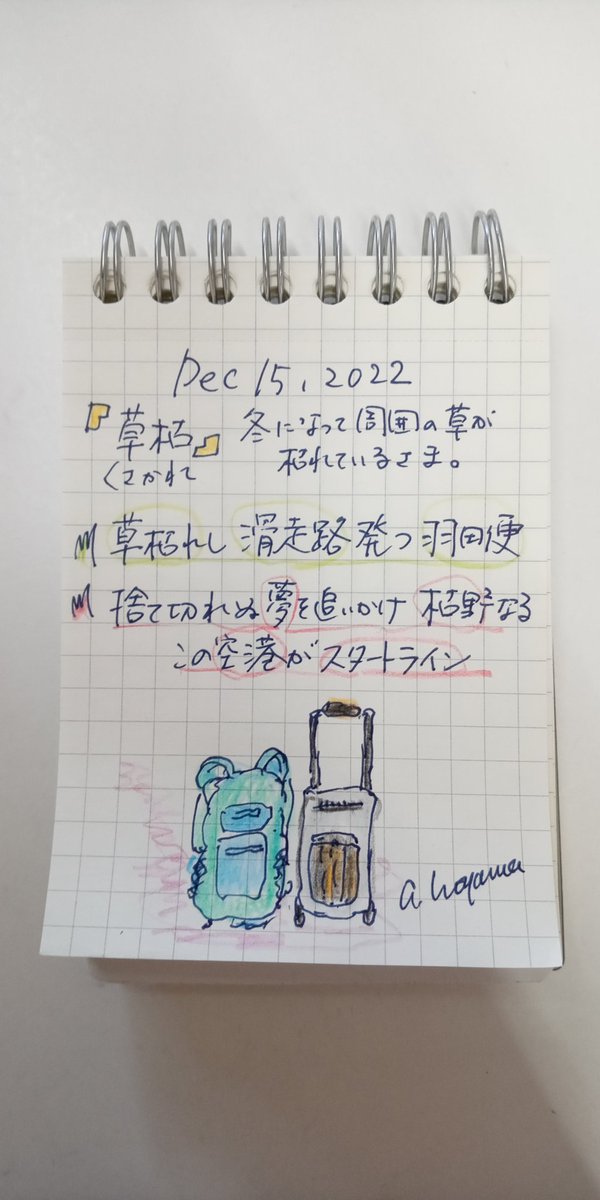 Dec 15, 2022
『草枯』 冬になって周囲の草が
くさかれ 枯れているさま。
草枯れし 滑走路発つ 羽田便
捨て切れぬ夢を追いかけ 枯野なる
この空港がスタートライン